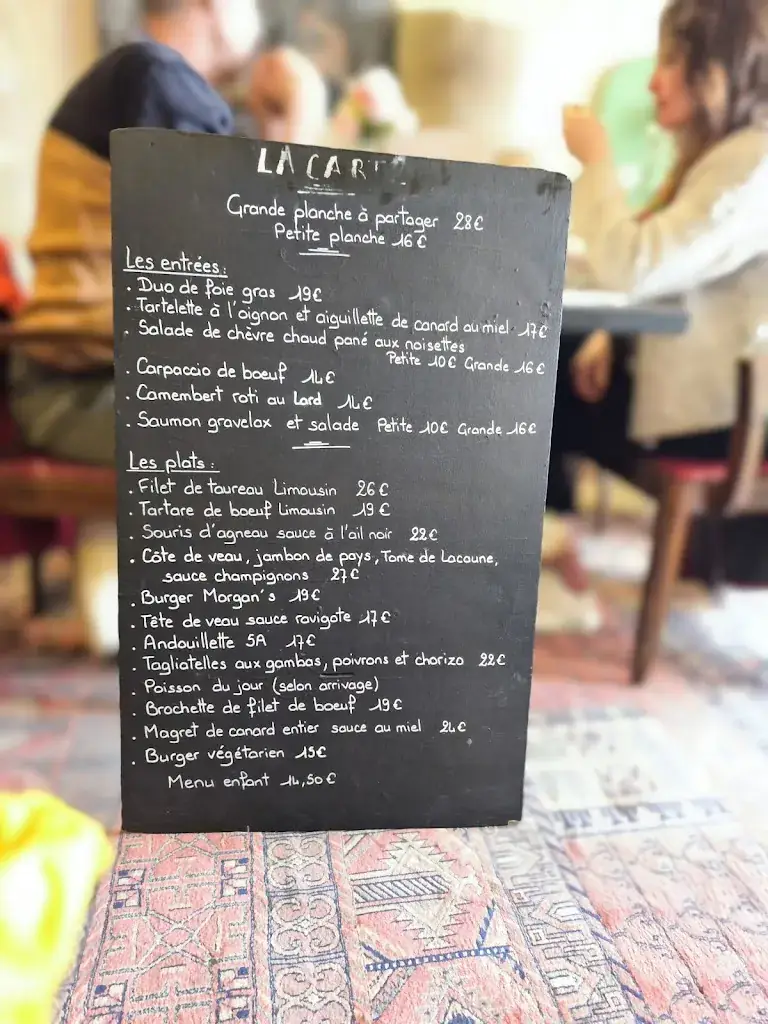 LA CARTE
Grande planche à partager 28€
Petite planche 16€
Les entrées :
. Duo de foie gras 19€
. Tartelette à l'oignon et aiguillette de canard au miel 17€
. Salade de chèvre chaud pané aux noisettes
Petite 10€ Grande 16€
. Carpaccio de boeuf 14€
. Camembert roti au Lard 14€
. Saumon gravelax et salade Petite 10€ Grande 16€
Les plats :
. Filet de taureau Limousin 26€
. Tartare de boeuf Limousin 19€
. Souris d'agneau sauce à l'ail noir 22€
. Côte de veau, jambon de pays, Tome de Lacaune,
sauce champignons 27€
. Burger Morgan's 19€
. Tête de veau sauce ravigote 17€
. Andouillette 5A 17€
. Tagliatelles aux gambas, poivrons et chorizo 22€
. Poisson du jour (selon arrivage)
. Brochette de filet de boeuf 19€
. Magret de canard entier sauce au miel 24€
. Burger végétarien 15€
Menu enfant 14,50€